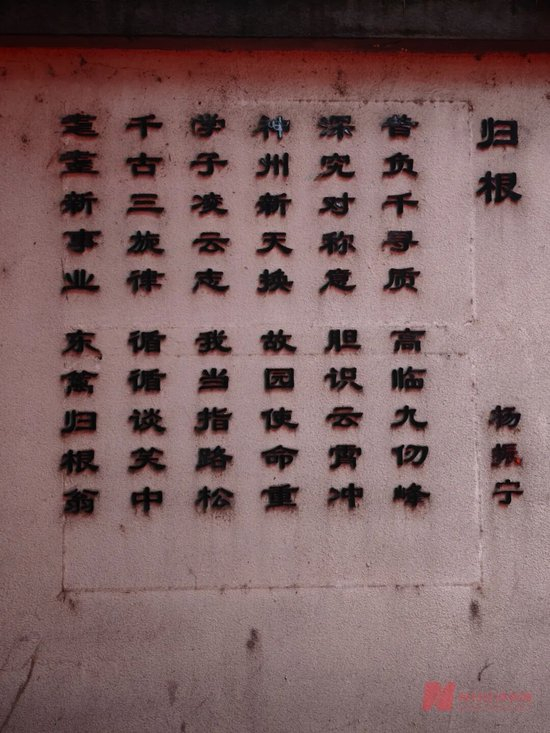 归根 杨振宁
昔负千寻质 高临九仞峰
深究对称意 胆识云霄冲
神州新天换 故园使命重
学子凌云志 我当指路松
千古三旋律 循循谈笑中
耄耋新事业 东篱归根翁